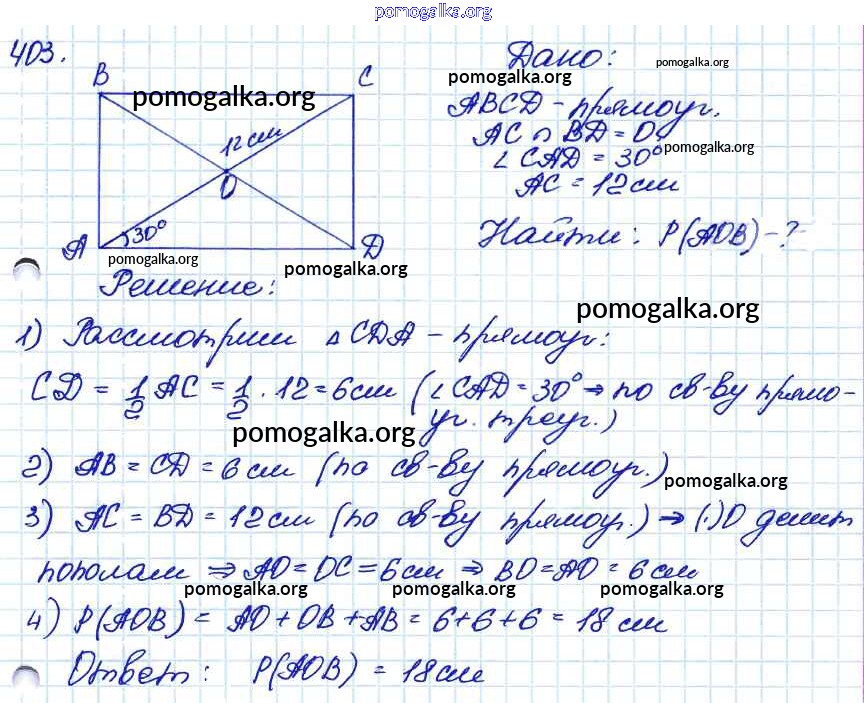 pomogalka.org
403.
B
C
12 см
O
A
30°
D
pomogalka.org
pomogalka.org
pomogalka.org
Дано:
pomogalka.org
pomogalka.org
ABCD - прямоуг.
AC ∩ BD = O
∠CAD = 30°
pomogalka.org
AC = 12 см
Найти: P(AOB) - ?
Решение:
pomogalka.org
1) Рассмотрим △CDA - прямоуг:
CD = 1/2 AC = 1/2 · 12 = 6 см (∠CAD = 30° ⇒ по св-ву прямо-
уг. треуг.)
pomogalka.org
2) AB = CD = 6 см (по св-ву прямоуг.)
pomogalka.org
3) AC = BD = 12 см (по св-ву прямоуг.) ⇒ (·)O делит
пополам ⇒ AO = OC = 6 см ⇒ BO = AO = 6 см
pomogalka.org pomogalka.org pomogalka.org
4) P(AOB) = AO + OB + AB = 6+6+6 = 18 см
Ответ: P(AOB) = 18 см